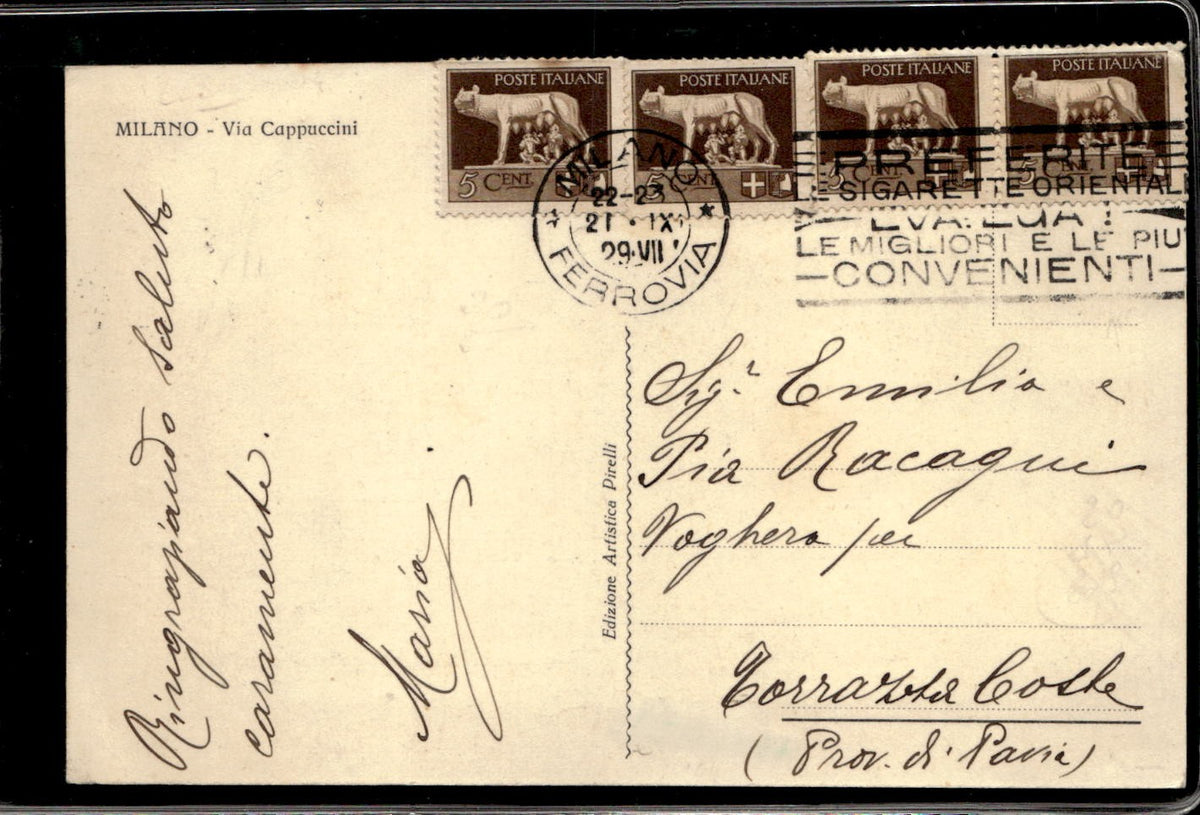 MILANO - Via Cappuccini
POSTE ITALIANE
5 CENT.
POSTE ITALIANE
5 CENT.
POSTE ITALIANE
5 CENT.
POSTE ITALIANE
5 CENT.
MILANO
22-23
21 · IX
29·VII
* FERROVIA *
PREFERITE
LE SIGARETTE ORIENTALI
EVA. EGA !
LE MIGLIORI E LE PIU'
CONVENIENTI
Ringraziando saluto
caramente.
Maria
Edizione Artistica Pirelli
Sig.r Emilia e
Pia Racagni
Voghera per
Torrazza Coste
(Prov. di Pavia)